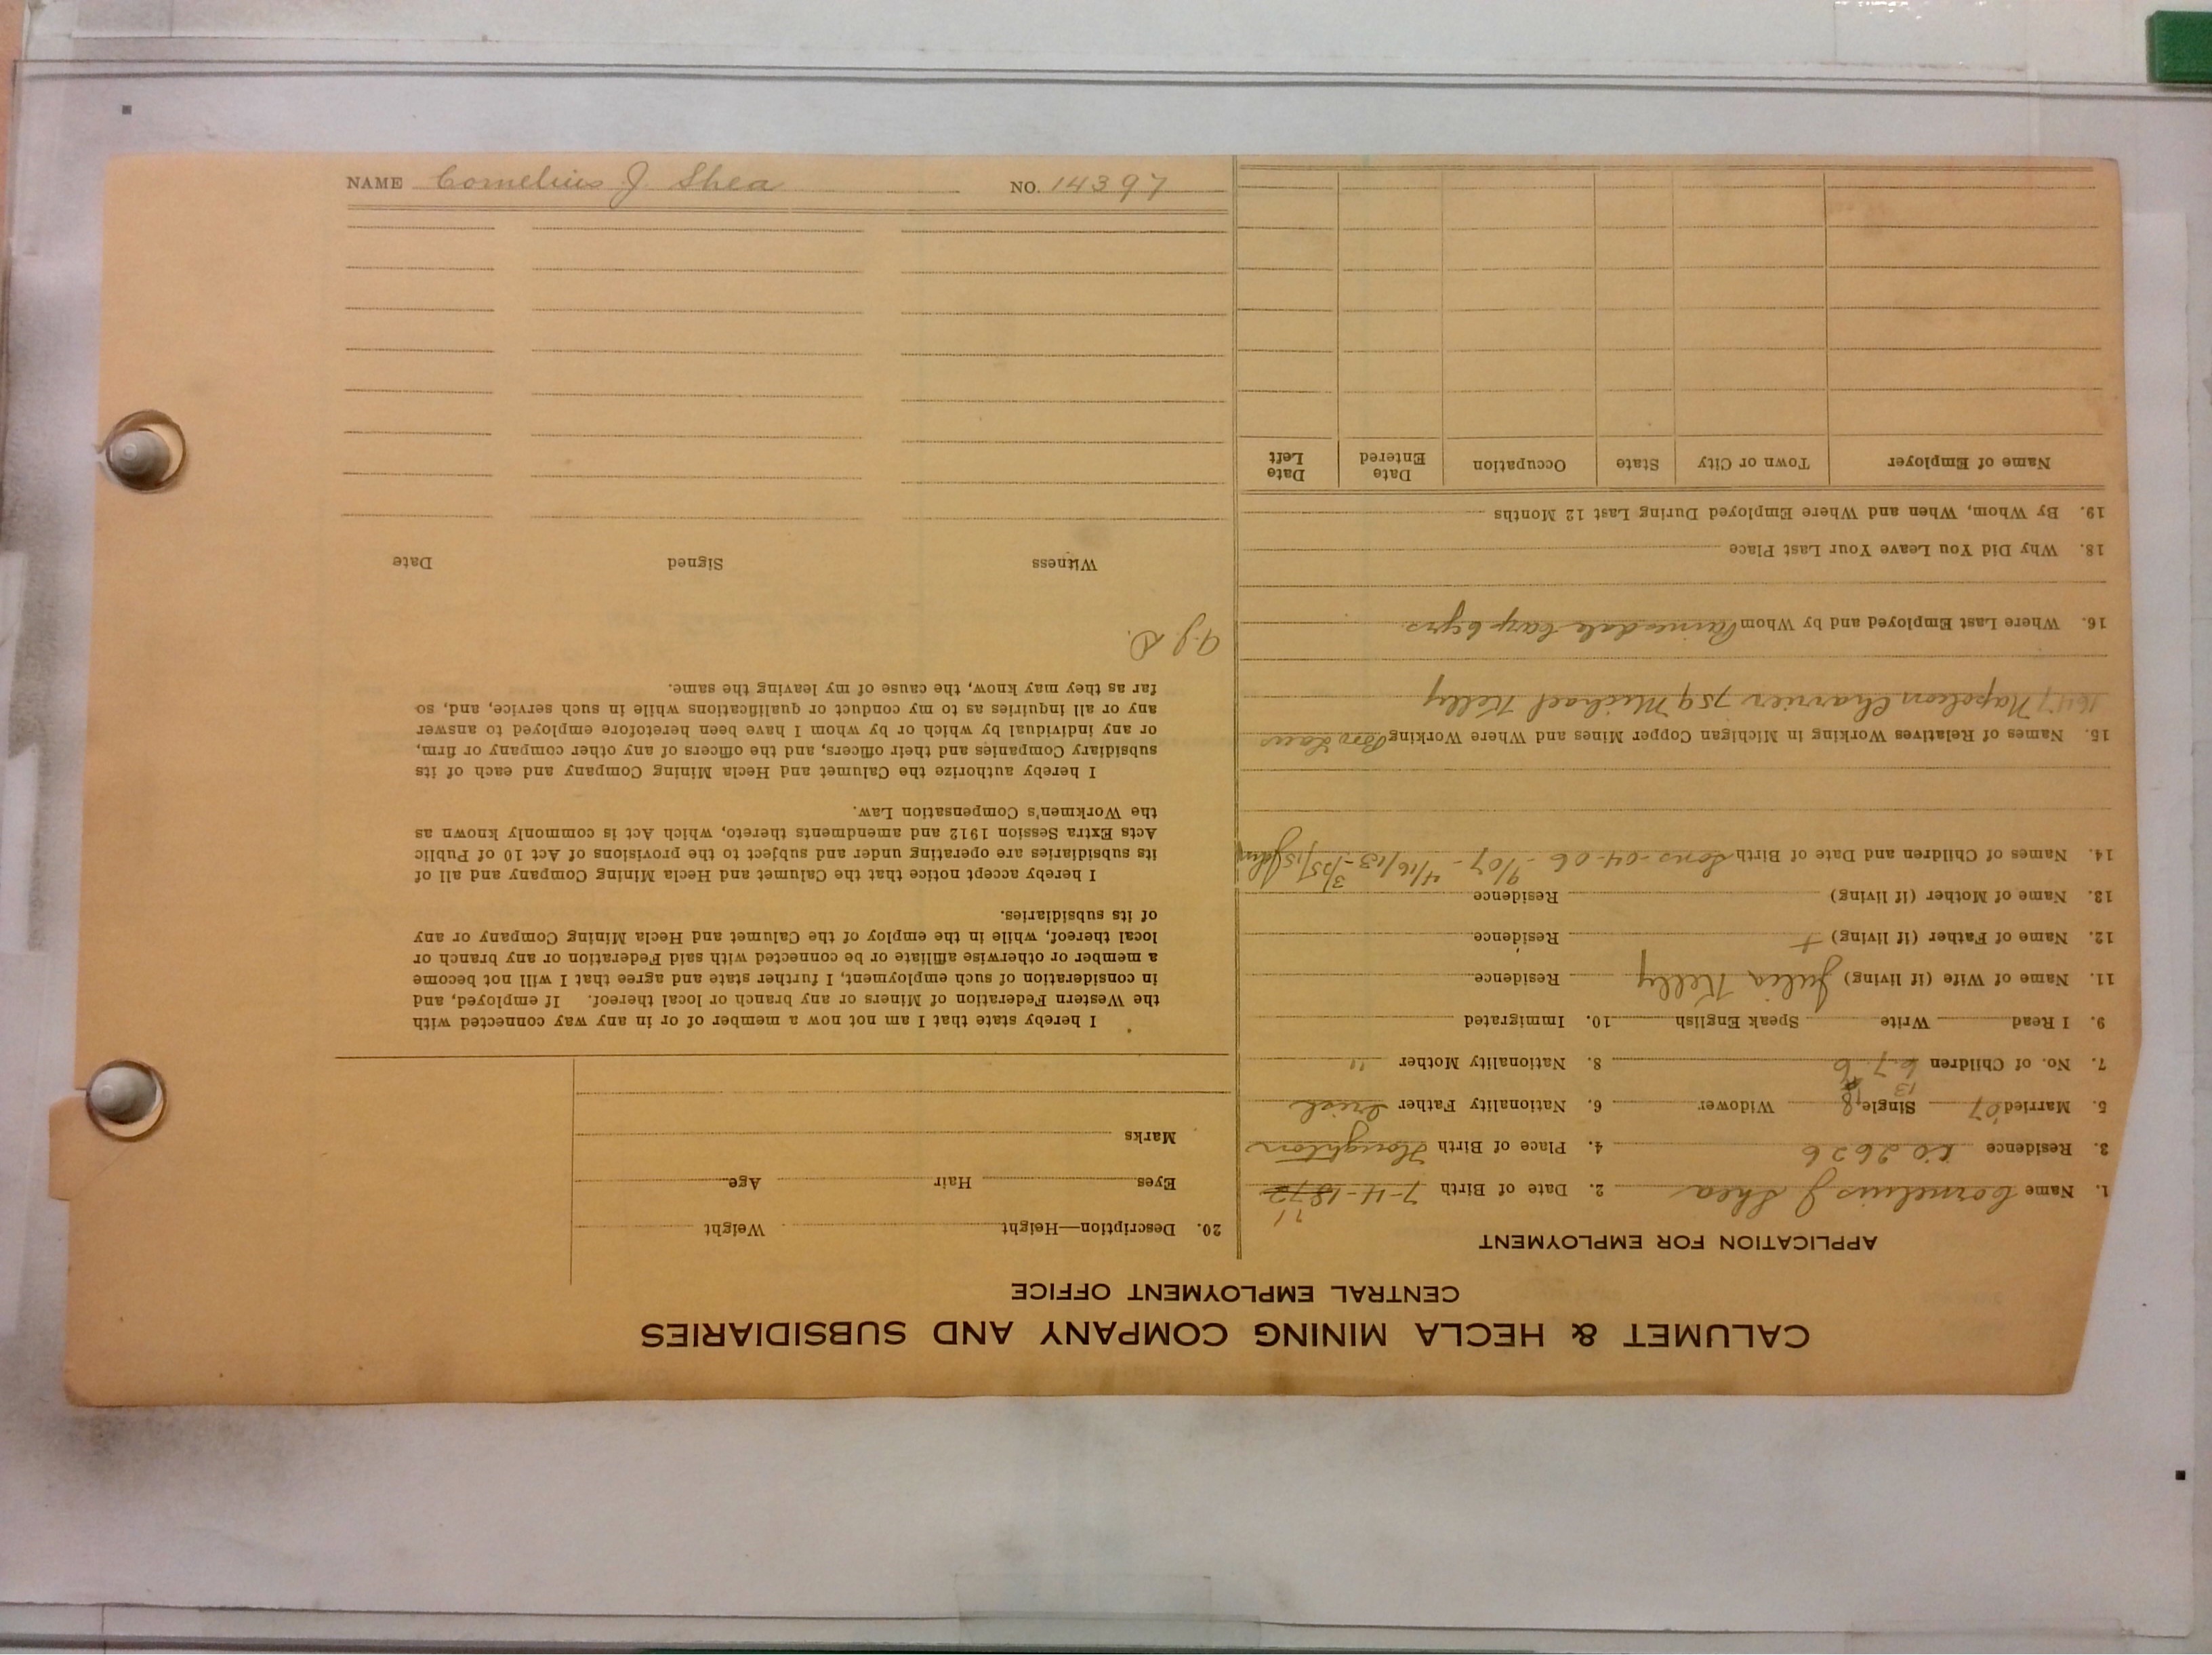 NAME Cornelius J. Shea NO. 14397
CALUMET & HECLA MINING COMPANY AND SUBSIDIARIES
CENTRAL EMPLOYMENT OFFICE
APPLICATION FOR EMPLOYMENT
1. Name Cornelius J Shea 2. Date of Birth 7-11-1872
3. Residence 2626 4. Place of Birth Houghton
5. Married '07 Single 8 Widower 6. Nationality Father Irish
13
7. No. of Children 6-7-6 8. Nationality Mother "
9. I Read Write Speak English 10. Immigrated
11. Name of Wife (if living) Julia Kelly Residence
12. Name of Father (if living) + Residence
13. Name of Mother (if living) Residence
14. Names of Children and Date of Birth Sons-04-06- 9/07- 4/16/13- 3/25/15
15. Names of Relatives Working in Michigan Copper Mines and Where Working Bro Laws
Napoleon Charrier 759 Michael Kelly
16. Where Last Employed and by Whom Painesdale 6 yrs.
18. Why Did You Leave Your Last Place
19. By Whom, When and Where Employed During Last 12 Months
Name of Employer Town or City State Occupation Date Entered Date Left
20. Description—Height Weight
Eyes Hair Age
Marks
I hereby state that I am not now a member of or in any way connected with
the Western Federation of Miners or any branch or local thereof. If employed, and
in consideration of such employment, I further state and agree that I will not become
a member or otherwise affiliate or be connected with said Federation or any branch or
local thereof, while in the employ of the Calumet and Hecla Mining Company or any
of its subsidiaries.
I hereby accept notice that the Calumet and Hecla Mining Company and all of
its subsidiaries are operating under and subject to the provisions of Act 10 of Public
Acts Extra Session 1912 and amendments thereto, which Act is commonly known as
the Workmen's Compensation Law.
I hereby authorize the Calumet and Hecla Mining Company and each of its
subsidiary Companies and their officers, and the officers of any other company or firm,
or any individual by which or by whom I have been heretofore employed to answer
any or all inquiries as to my conduct or qualifications while in such service, and, so
far as they may know, the cause of my leaving the same.
Witness Signed Date